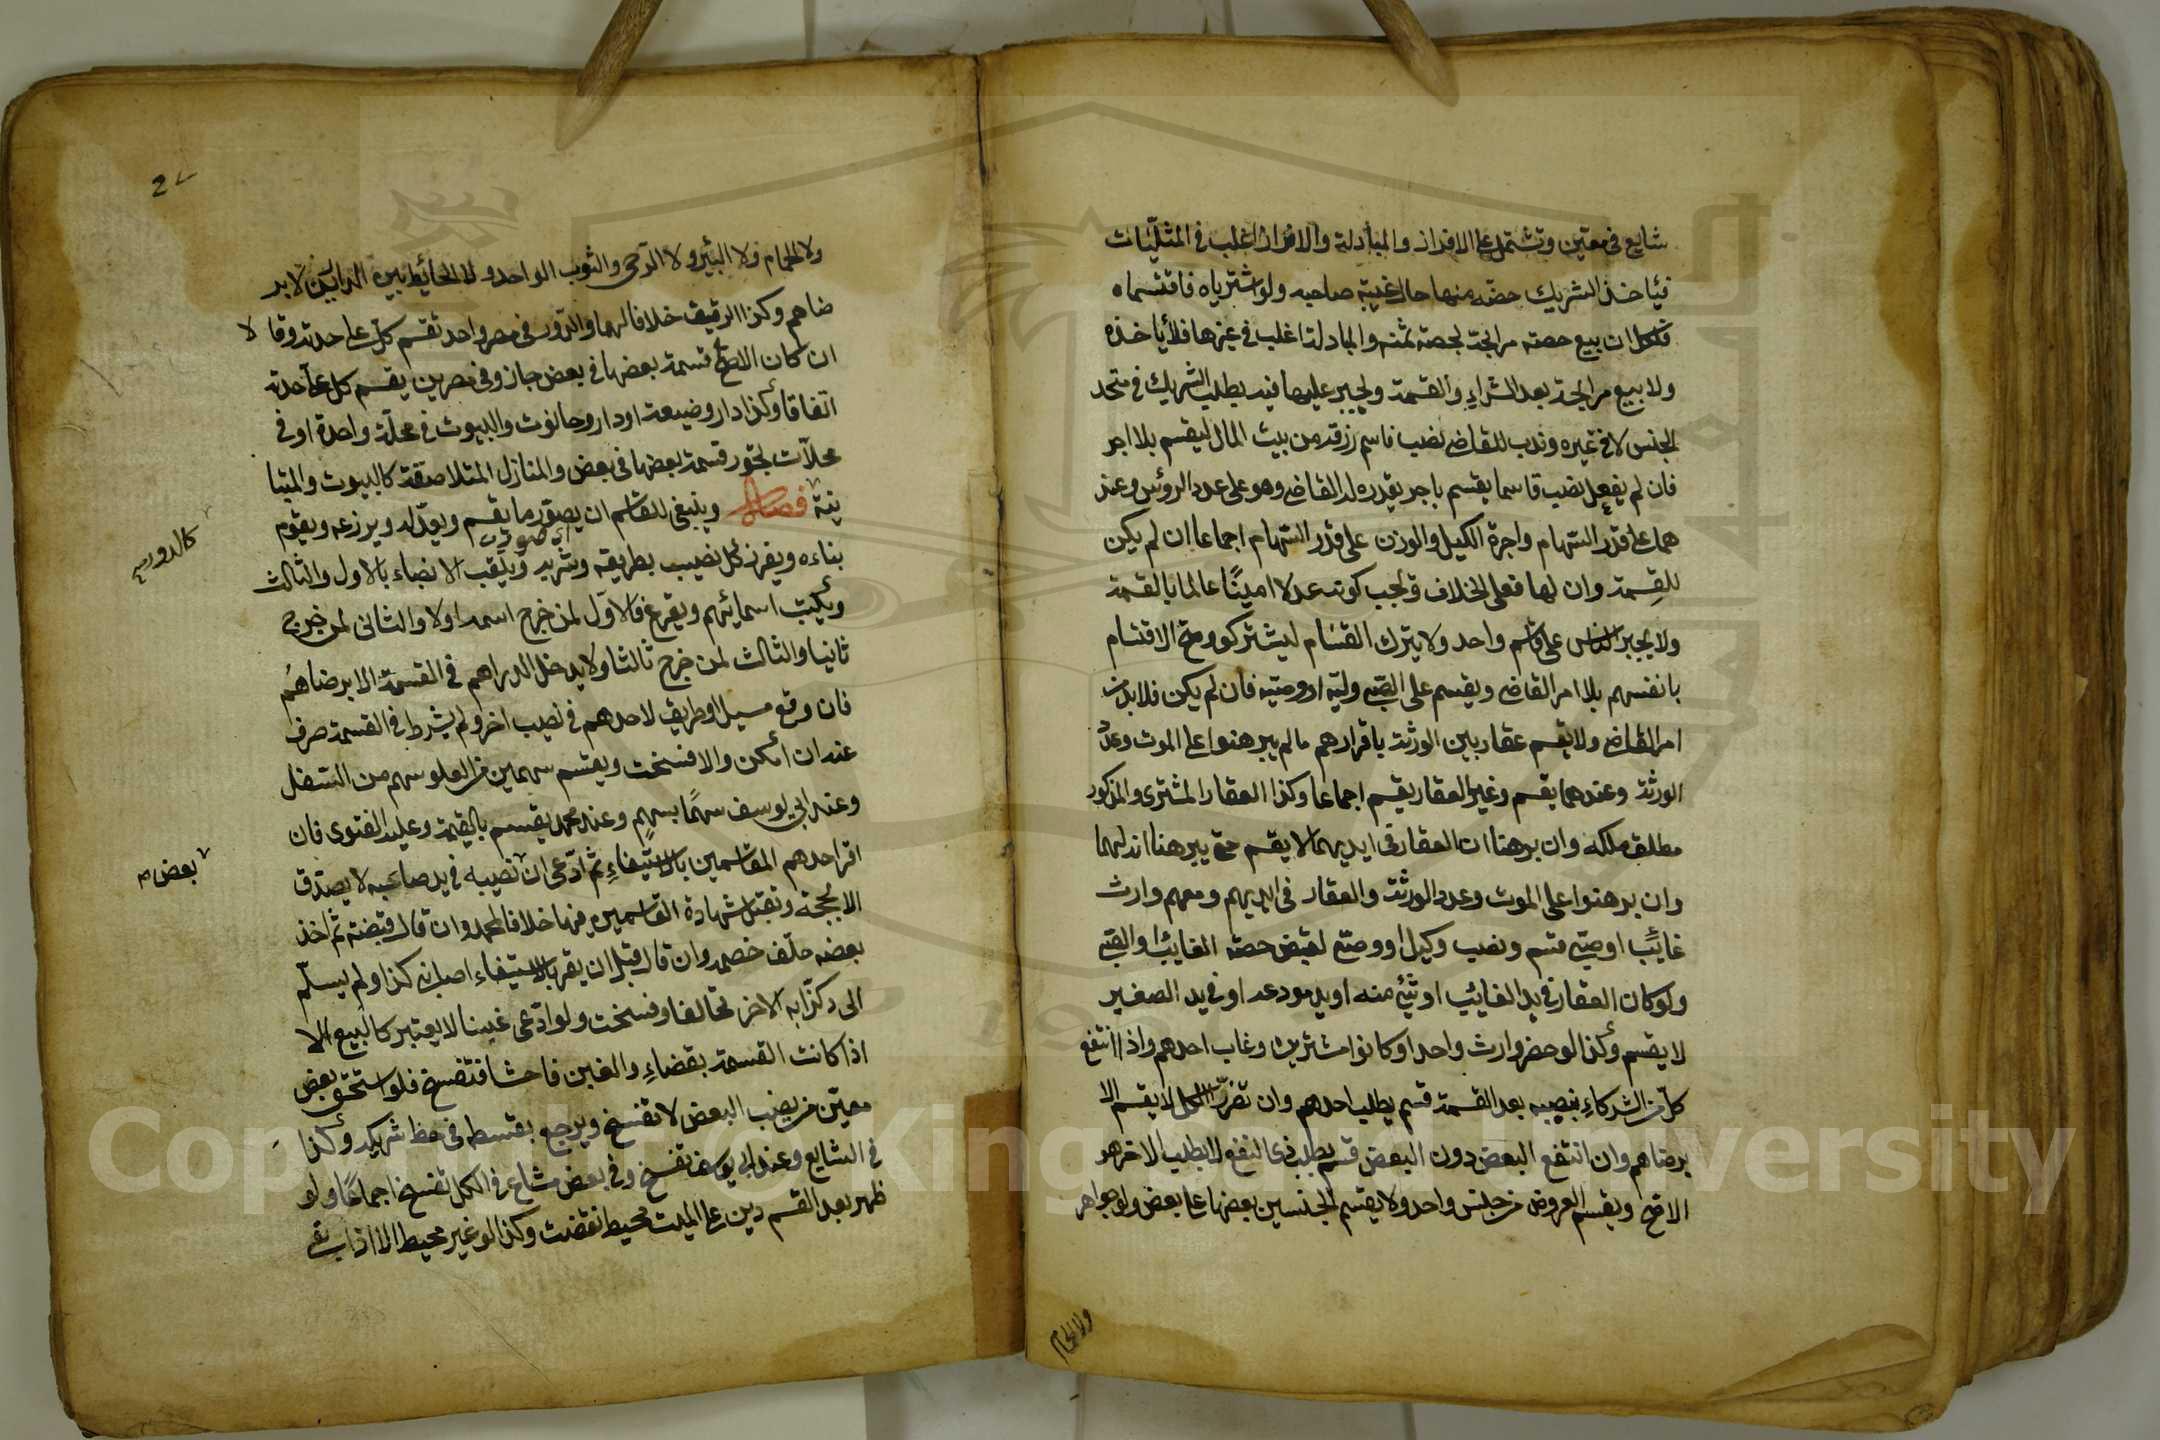 شايع في معين وتشتمل على الافراز والمبادلة والافراز اغلب في المثليات
فياخذ الشريك حصته منها حال غيبة صاحبه ولو اشترياه فاقتسماه
فلكل ان يبيع حصته مرابحة بحصة ثمنه والمبادلة اغلب في غيرها فلا ياخذه
ولا يبيع مرابحة بعد الشراء والقسمة ويجبر عليها فيه بطلب الشريك في متحد
الجنس لا في غيره وندب للقاضي نصب قاسم رزقه من بيت المال ليقسم بلا اجر
فان لم يفعل نصب قاسما يقسم باجر يقدره له القاضي وهو على عدد الرؤس وعند
هما على قدر السهام واجرة الكيل والوزن على قدر السهام اجماعا ان لم يكن
للقسمة وان لها فعلى الخلاف ويجب كونه عدلا امينا عالما بالقسمة
ولا يجبر الناس على قاسم واحد ولا يترك القسام ليشتركوا وصح الاقتسام
بانفسهم بلا امر القاضي ويقسم على الصبي وليه او وصيه فان لم يكن فلا بد من
امر القاضي ولا يقسم عقار بين الورثة باقرارهم ما لم يبرهنوا على الموت وعدد
الورثة وعندهما يقسم وغير العقار يقسم اجماعا وكذا العقار المشترى والمذكور
مطلق ملكه وان برهنا ان العقار في ايديهما لا يقسم حتى يبرهنا انه لهما
وان برهنوا على الموت وعدد الورثة والعقار في ايديهم ومعهم وارث
غائب او صبي قسم ونصب وكيل او وصي لقبض حصة الغائب او الصبي
ولو كان العقار في يد الغائب او شئ منه او يد مودعه او في يد الصغير
لا يقسم وكذا لو حضر وارث واحد او كانوا مشترين وغاب احدهم واذا انتفع
كل من الشركاء بنصيبه بعد القسمة قسم بطلب احدهم وان تضرر الكل لا يقسم الا
برضاهم وان انتفع البعض دون البعض قسم بطلب ذي النفع لا بطلب الاخر هو
الاصح ويقسم العروض من جنس واحد ولا يقسم الجنسين بعضها على بعض ولا جواهر
ولا الحمام
ولا الحمام ولا البئر ولا الرحى والثوب الواحد ولا الحائط بين الدارين الا بر
ضاهم وكذا الرقيق خلافا لهما والدور في مصر واحد تقسم كل على حدة وقالا
ان كان الاصلح قسمة بعضها في بعض جاز وفي مصرين يقسم كل على حدة
اتفاقا وكذا دار وضيعة او دار وحانوت والبيوت في محلة واحدة او في
محلات يجوز قسمة بعضها في بعض والمنازل المتلاصقة كالبيوت والمتبا
ينة فصل وينبغي للقاسم ان يصور ما يقسم ويعدله ويزرعه ويقوم
كالدور
بناءه ويفرز كل نصيب بطريقه وشربه ويلقب الانصباء بالاول والثالث
ويكتب اسمائهم ويقرع فالاول لمن خرج اسمه اولا والثاني لمن خرج
ثانيا والثالث لمن خرج ثالثا ولا يدخل الدراهم في القسمة الا برضاهم
فان وقع مسيل او طريق لاحدهم في نصيب اخر ولم يشرط في القسمة صرف
عنه ان امكن والا فسخت ويقسم سهمين من العلو بسهم من السفل
وعند ابي يوسف سهما بسهم وعند محمد يقسم بالقيمة وعليه الفتوى فان
اقر احدهم المقاسمين بالاستيفاء ثم ادعى ان نصيبه في يد صاحبه لا يصدق
بعض
الا بحجة وتقبل شهادة القاسمين فيها خلافا لمحمد وان قال قبضته ثم اخذ
بعضه حلف خصمه وان قال قبل ان يقر بالاستيفاء اصابني كذا ولم يسلم
الي وكذبه الاخر تحالفا وفسخت ولو ادعى غبنا لا يعتبر كالبيع الا
اذا كانت القسمة بقضاء والغبن فاحشا فتفسخ فلو استحق بعض
معين من نصيب البعض لا تفسخ ويرجع بقسطه في حظ شريكه وكذا
في الشايع وعند ابي يوسف تفسخ وفي بعض مشاع في الكل تفسخ اجماعا ولو
ظهر بعد القسم دين على الميت محيط نقضت وكذا لو غير محيط الا اذا بقي
Copyright © King Saud University